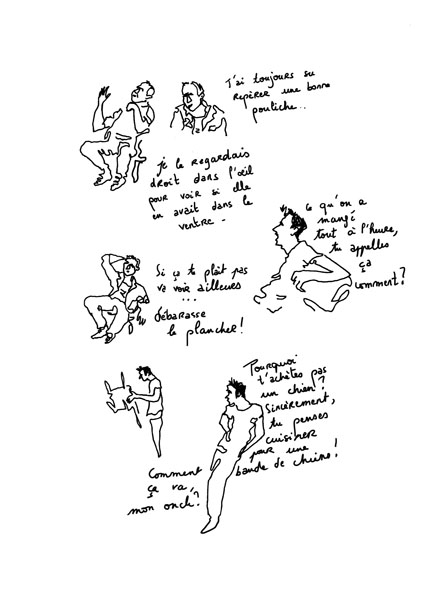 J'ai toujours su
repérer une bonne
pouliche..
je le regardais
droit dans l'œil
pour voir si elle
en avait dans le
ventre -
ce qu'on a
mangé
tout à l'heure,
tu appelles
ça
comment?
Si ça te plaît pas
va voir ailleurs
...
débarasse
le plancher!
Pourquoi
t'achètes pas
un chien?
Sincèrement,
tu penses
cuisiner
pour une
bande de chiens!
Comment
ça va,
mon oncle?